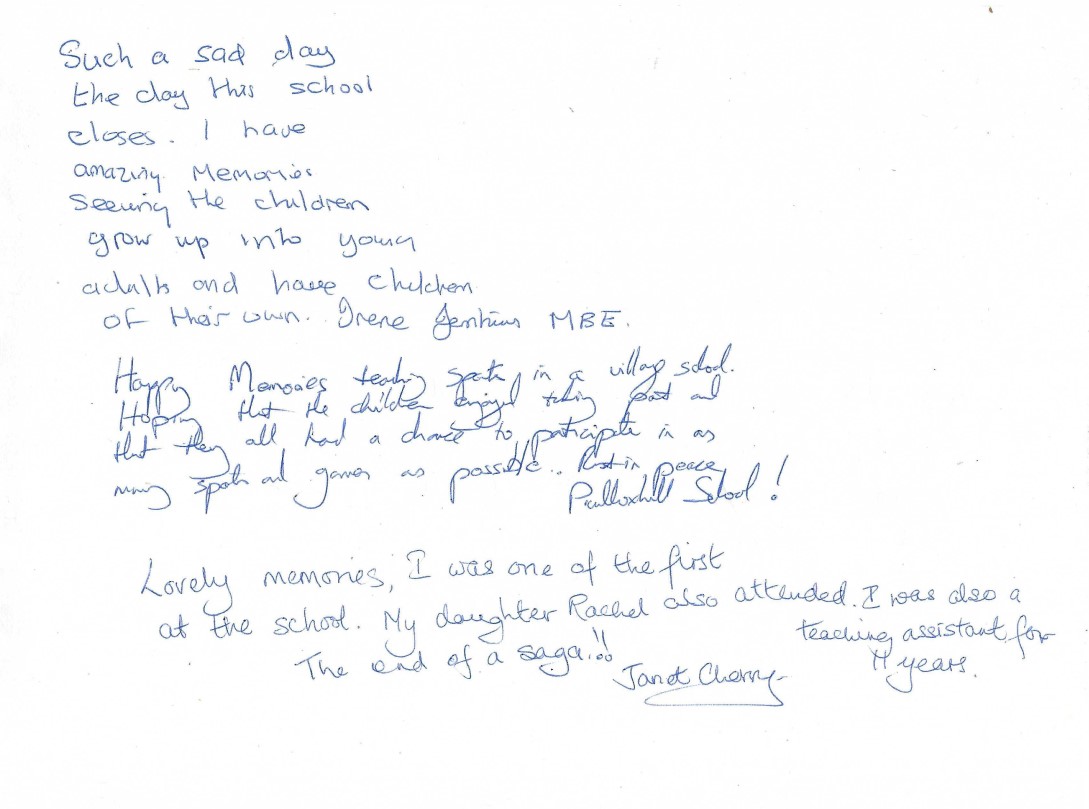 Such a sad day
the day this school
closes. I have
amazing Memories
seeing the children
grow up into young
adults and have children
of their own. Irene Jenkins MBE.
Happy Memories teaching sports in a village school.
Hoping that the children enjoyed taking part and
that they all had a chance to participate in as
many sports and games as possible.. Rest in peace
Pulloxhill School!
Lovely memories, I was one of the first
at the school. My daughter Rachel also attended. I was also a
teaching assistant for
11 years.
The end of a saga!!
Janet Cherry